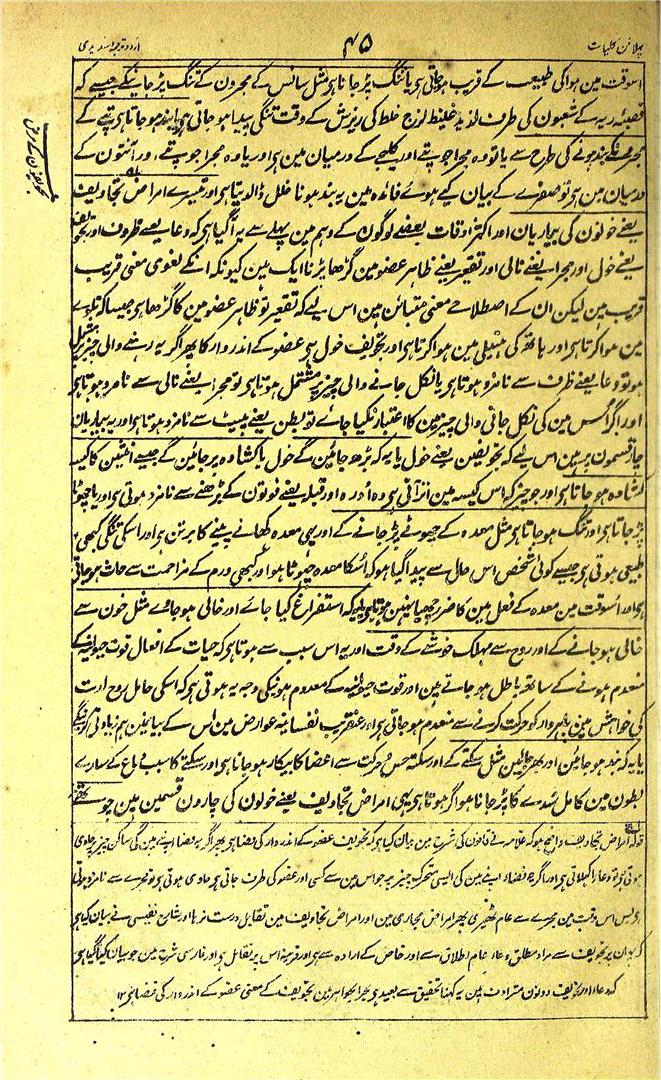 پہلا فن کلیات
۴۵
اردو ترجمہ سدیدی
اسوقت مین ہوا کی طبیعت کے قریب ہو جاتی ہی یا تنگ پڑ جانا ہی مثل سانس کے مجرون کے تنگ پڑ جانیکے جیسے کہ
قصبۂ ریہ کے شعبون کی طرف لذیذ غلیظ لزج خلط کی ریزش کے وقت تنگی پیدا ہو جاتی ہی یا بند ہو جاتا ہی پتے کے
مجرے کے بند ہونے کی طرح سے یا تو وہ مجرا جو پتے اور کلیجے کے درمیان مین ہی اور یا وہ مجرا جو پتے اور آنتون کے
درمیان مین ہی تو صفرے کے بیان کیے ہوے فائدہ مین یہ بند ہونا خلل ڈالدیتا ہی اور تیسرے امراض تجاویف
یعنے خولون کی بیماریان اور اکثر اوقات بعضے لوگون کے وہم مین پہلے سے یہ آگیا ہی کہ وعا یعنے ظروف اور تجویف
یعنے خول اور مجرا یعنے نالی اور تقعیر یعنے ظاہر عضو مین گڑھا پڑنا ایک ہین کیونکہ انکے لغوی معنی قریب
قریب ہین لیکن ان کے اصطلاحے معنی متبائن ہین اس لیے کہ تقعیر تو ظاہر عضو مین کا گڑھا ہی جیسا کہ تلوے
مین ہوا کرتا ہی اور ہاتھ کی ہتیلی مین ہوا کرتا ہی اور تجویف خول ہی عضو کے اندر وار کا پھر اگر یہ رہنے والی چیز پر مشتمل
ہو تو وعا یعنے ظرف سے نامزد ہوتا ہی یا نکل جانے والی چیز پر مشتمل ہوتا ہی تو مجرا یعنے نالی سے نامزد ہوتا ہی
اور اگر اُس مین کی نکل جانی والی چیز مین کا اعتبار نکیا جائے تو بطن یعنے پیٹ سے نامزد ہوتا ہی اور یہ بیماریان
چار قسمون پر ہین اس لیے کہ تجویفین یعنے خول یا یہ کہ بڑھ جائین گے خول یا کشادہ پر جائین گے جیسے انثیین کا کیسہ
کشادہ ہو جاتا ہی اور جو چیز کہ اس کیسہ مین اتر آتی ہی وہ اُدرہ اور قیلہ یعنے فوتون کے بڑھنے سے نامزد ہوتی ہی اور یا چھوٹا
پڑ جاتا ہی اور تنگ ہو جاتا ہی مثل معدہ کے چھوٹے پڑ جانے کے اور یہی معدہ کھانے پینے کا برتن ہی اور اسکی تنگی کبھی
طبیعی ہوتی ہی جیسے کوئی شخص اس حال سے پیدا گیا ہو کہ اُسکا معدہ چھوٹا ہو اور کبھی ورم کے مزاحمت سے حادث ہو جاتی
ہی اور اُسوقت مین معدہ کے فعل مین کا ضرر چھپا نہین ہوتا ہی یا یہ کہ استفراغ کیا جائے اور خالی ہو جاوے مثل خون سے
خالی ہو جانے کے اور روح سے مہلک خوشے کے وقت اور یہ اس سبب سے ہوتا ہی کہ حیات کے افعال قوت حیوانیہ کے
منعدم ہونے کے ساتھ باطل ہو جاتے ہین اور قوت حیوانیہ کے معدوم ہونیکی وجہ یہ ہوتی ہی کہ اسکی حامل روح ارت
کی خواہش مین باہر وار کو حرکت کرنے سے منعدم ہو جاتی ہی اور عنقریب نفسانیہ عوارض مین اس کے بیان مین ہم زیادتی کرینگے
یا یہ کہ بند ہو جائین اور بھر جائین مثل سکتے کے اور سکتہ حس و حرکت سے اعضا کا بیکار ہو جانا ہی اور سکتے کا سبب دماغ کے سارے
بطون مین کامل سُدے کا پڑ جانا ہوا کرتا ہی یہی امراض تجاویف یعنے خولون کی چارون قسمین ہین چوتھے
قولہ امراض تجاویف واضح ہو کہ علامہ نے قانون کی شرح مین بیان کیا ہی کہ تجویف عضو کے اندر وار کی فضا ہی پھر اگر یہ فضا اپنے مین کی ساکن چیز پر حاوی
ہوتی ہی تو وعا کہلاتی ہی اور اگر یہ فضا اپنے مین کی ایسی متحرک چیز پر جو اس مین سے کسی اور عضو کی طرف جاتی ہی حاوی ہوتی ہی تو مجرے سے نامزد ہوتی
ہی پس اس وقت مین مجرے سے عام ٹھیری پھر امراض مجاری مین اور امراض تجاویف مین تقابل درست نرہا اور شارح نفیسی نے بیان کیا ہی
کہ یہان پر تجویف سے مراد مطلق وعا عام اطلاق سے اور خاص کے ارادہ سے ہی اور قرینہ اس پر تقابل ہی اور فارسی شرح مین جو بیان کیا گیا ہی
کہ وعا اور تجویف دونون مترادف ہین یہ کہنا تحقیق سے بعید ہی تجویف کے معنی عضو کے اندر وار کی فضا ہی ۱۲